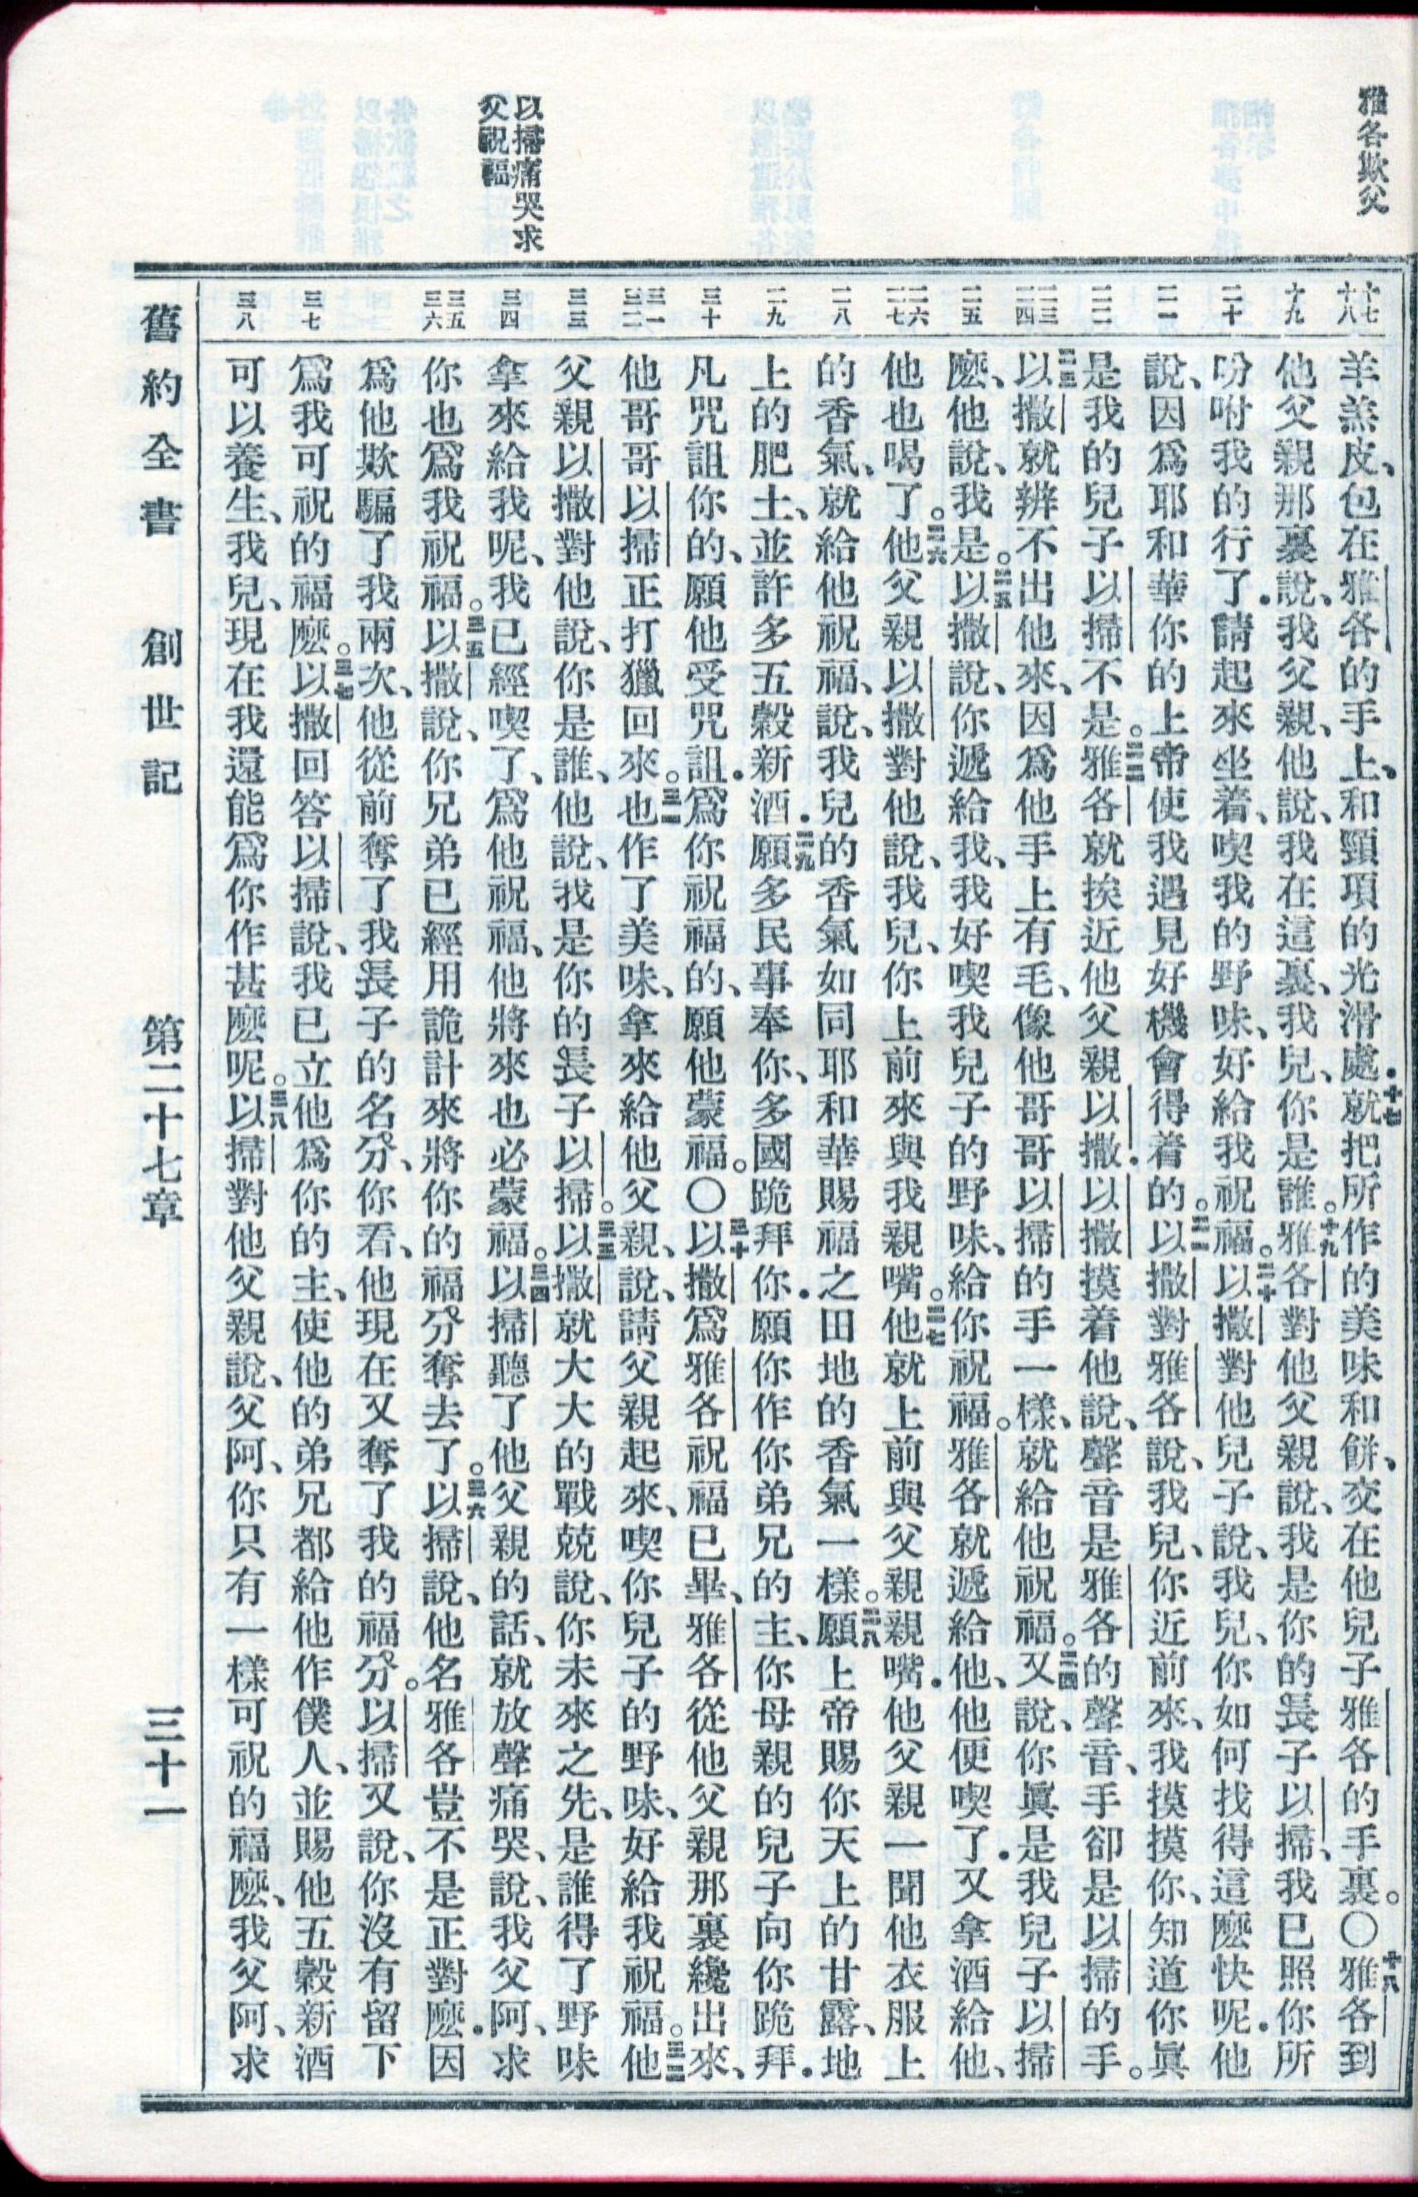 雅各欺父
以掃痛哭求
父祝福
十七
十八
十九
二十
二一
二二
二三
二四
二五
二六
二七
二八
二九
三十
三一
三二
三三
三四
三五
三六
三七
三八
羊羔皮、包在雅各的手上、和頸項的光滑處．十七就把所作的美味和餅、交在他兒子雅各的手裏。〇十八雅各到
他父親那裏說、我父親、他說、我在這裏、我兒、你是誰。十九雅各對他父親說、我是你的長子以掃、我已照你所
吩咐我的行了．請起來坐着、喫我的野味、好給我祝福。二十以撒對他兒子說、我兒、你如何找得這麼快呢．他
說、因爲耶和華你的上帝使我遇見好機會得着的。二一以撒對雅各說、我兒、你近前來、我摸摸你、知道你眞
是我的兒子以掃不是。二二雅各就挨近他父親以撒．以撒摸着他說、聲音是雅各的聲音、手卻是以掃的手。
二三以撒就辨不出他來、因爲他手上有毛、像他哥哥以掃的手一樣、就給他祝福。二四又說、你眞是我兒子以掃
麼、他說、我是。二五以撒說、你遞給我、我好喫我兒子的野味、給你祝福。雅各就遞給他、他便喫了．又拿酒給他、
他也喝了。二六他父親以撒對他說、我兒、你上前來與我親嘴。二七他就上前與父親親嘴．他父親一聞他衣服上
的香氣、就給他祝福、說、我兒的香氣如同耶和華賜福之田地的香氣一樣。二八願上帝賜你天上的甘露、地
上的肥土、並許多五穀新酒．二九願多民事奉你、多國跪拜你．願你作你弟兄的主、你母親的兒子向你跪拜．
凡咒詛你的、願他受咒詛．爲你祝福的、願他蒙福。〇三十以撒爲雅各祝福已畢、雅各從他父親那裏纔出來、
他哥哥以掃正打獵回來。三一也作了美味、拿來給他父親、說、請父親起來、喫你兒子的野味、好給我祝福。三二他
父親以撒對他說、你是誰、他說、我是你的長子以掃。三三以撒就大大的戰兢說、你未來之先、是誰得了野味
拿來給我呢、我已經喫了、爲他祝福、他將來也必蒙福。三四以掃聽了他父親的話、就放聲痛哭、說、我父阿、求
你也爲我祝福。三五以撒說、你兄弟已經用詭計來將你的福分奪去了。三六以掃說、他名雅各豈不是正對麼．因
爲他欺騙了我兩次、他從前奪了我長子的名分、你看、他現在又奪了我的福分。以掃又說、你沒有留下
爲我可祝的福麼。三七以撒回答以掃說、我已立他爲你的主、使他的弟兄都給他作僕人、並賜他五穀新酒
可以養生、我兒、現在我還能爲你作甚麼呢。三八以掃對他父親說、父阿、你只有一樣可祝的福麼、我父阿、求
舊約全書　創世記　第二十七章　三十一